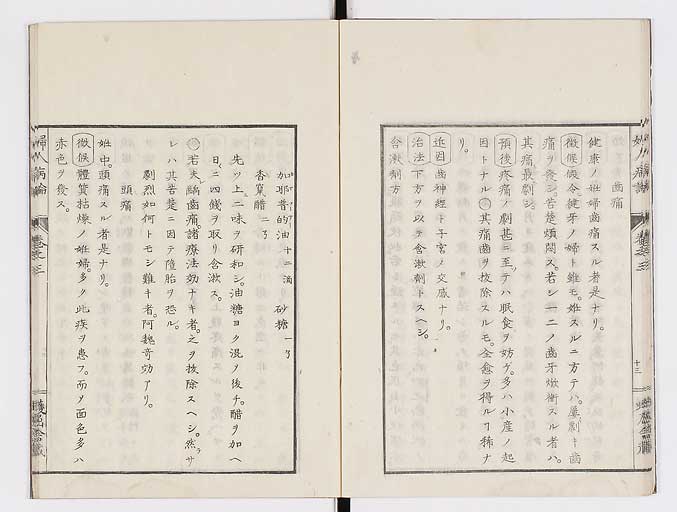 歯痛
健康ノ妊婦歯痛スル者是ナリ。
徴候假令健牙ノ婦ト雖モ。姙スルニ方テハ。屢劇キ歯
痛ヲ発シ。苦楚煩悶ス。若シ一二ノ歯牙焮衝スル者ハ。
其痛最劇シ。
預後疼痛ノ劇甚ニ至リテハ眠食ヲ妨ゲ。多ハ小産ノ起
因トナル 其痛歯ヲ抜除スルモ。全愈ヲ得ルヿ稀ナ
リ。
近因歯神経ト子宮ノ交感ナリ。
治法下方ヲ以テ含漱剤トスヘシ。
含漱剤方
十三
加耶普的油 十二滴 砂糖 一
杏菓醋 二
先ツ上ニ味ヲ研和シ。油糖ヨク混ノ後チ。醋ヲ加ヘ
日ニ四錢ヲ取リ含漱ス。
若夫齲歯痛。諸療法効ナキ者。之ヲ抜除スヘシ。然ラサ
レハ其苦楚ニ因テ堕胎ヲ恐ル。
劇烈如何トモシ難キ者。阿魏奇効アリ。
頭痛
姙中。頭痛スル者是ナリ。
徴候體質枯燥ノ姙婦。多ク此疾ヲ患フ。而ヲ面色多ハ
赤色ヲ発ス。
婦人病論